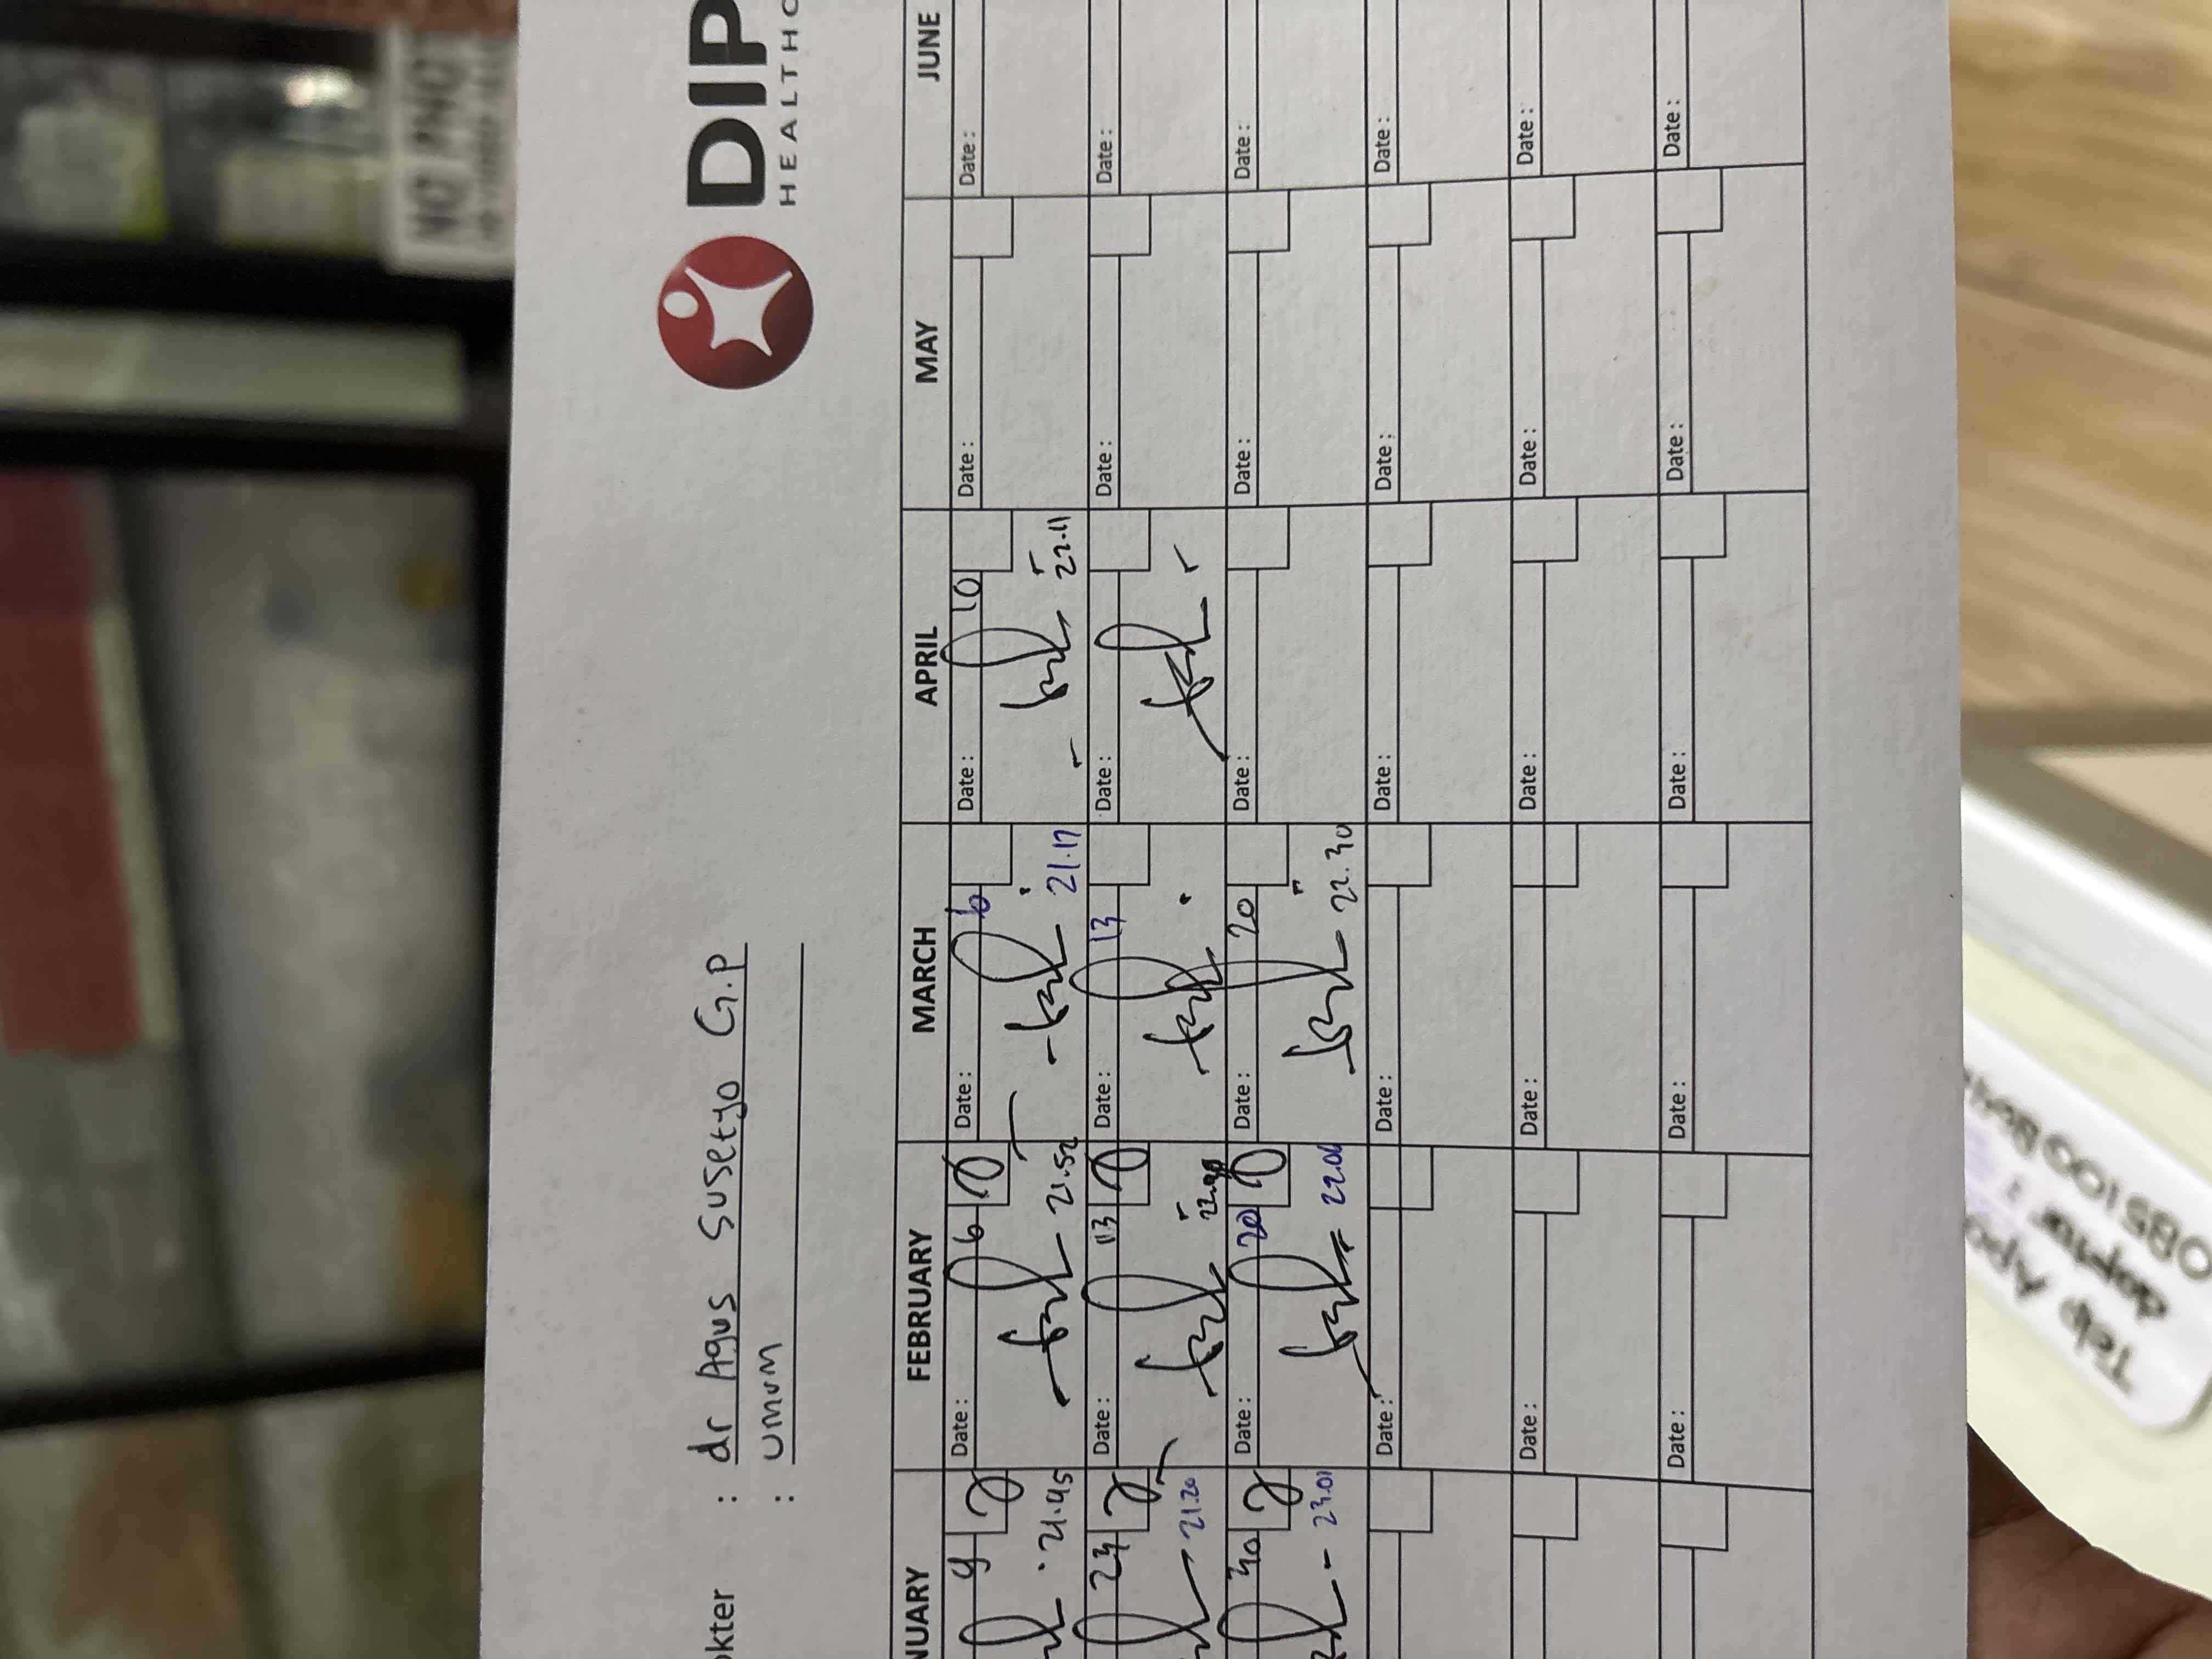 DIP
HEALTHC
okter : dr Agus Susetyo G.P
: umum
NUARY FEBRUARY MARCH APRIL MAY JUNE
9 Date : 6 Date : 6 Date : 10 Date : Date :
21.45 21.52 21.17 22.11
23 Date : 13 Date : 13 Date : Date : Date :
21.20
30 Date : 20 Date : 20 Date : Date : Date :
23.01 22.01 22.30
Date : Date : Date : Date : Date :
Date : Date : Date : Date : Date :
Date : Date : Date : Date : Date :
NO PHO
Telp Apo
dokter :